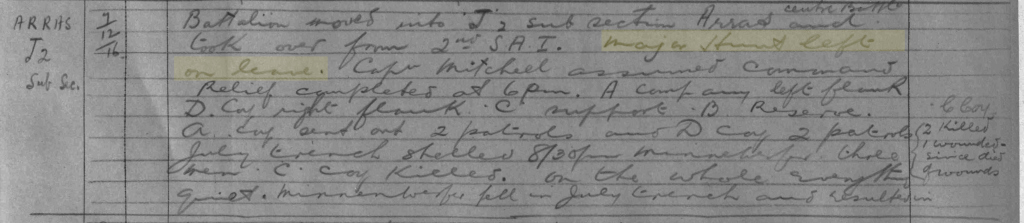 ARRAS
J2
Sub Sec.
7/12/16
centre Battle
Battalion moved into J2 sub section Arras and
took over from 2nd S.A.I. Major Hunt left
on leave. Capt Mitchell assumed command
Relief completed at 6pm. A company left flank
D. Coy right flank. C support. B Reserve.
A. Coy sent out 2 patrols and D Coy 2 patrols
July trench shelled 8/30pm minnenwerfer three
men C. Coy killed. On the whole everything
quiet. Minnenwerfer fell in July trench and resulted in
C Coy.
2 Killed
1 wounded
since died
of wounds